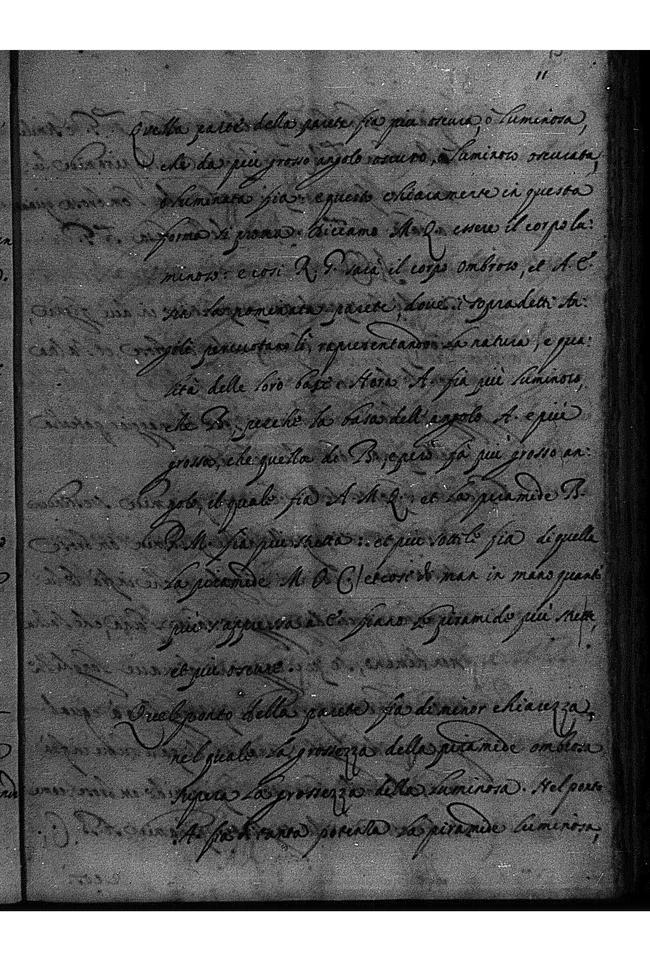 11
Quella parte della parete sia più oscura, ò luminosa,
che da più grosso angolo oscuro, ò luminoso oscurata,
ò luminata sia: e questo chiaramente in questa
forma si prova. Diciamo M. Q. essere il corpo lu:
minoso: e così R. P. sarà il corpo ombroso, et A. E.
sia la nominata parete, dove i sopradetti An:
goli percuotano li, rapresentando la natura, e qua:
lità delle loro base. Hora A. sia più luminoso,
che B., perche la basa dell'angolo A. e più
grossa, che quella di B., e però fà più grosso an:
golo, il quale sia A. M. Q., et la piramide B.
P. M. sia più stretta: et più sottile sia di quella
la piramide M. O. C./ et così di man in mano quanto
più s'appressa al E. siano le piramide più strette,
et più oscure.
Quel ponto della parete sia di minor chiarezza,
nel quale la grossezza della piramide ombrosa
supera la grossezza della luminosa. Nel ponto
.A. sia di tanta potentia la piramide luminosa,